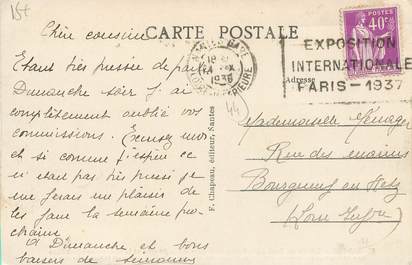 15+
CARTE POSTALE
Chère cousine
Étant très pressée de partir
Dimanche soir j'ai
complètement oublié vos
commissions. Excusez moi
et si comme j'espère ce
n'était pas très pressé je
me ferais un plaisir de
les faire la semaine pro-
chaine
à Dimanche et bons
baisers de
F. Chapeau, éditeur, Nantes
1936
INFÉRIEURE
POSTES
40c
EXPOSITION
INTERNATIONALE
PARIS-1937
Adresse
44
Mademoiselle
Rue des
Bourgneuf en Retz
(Loire Infre)